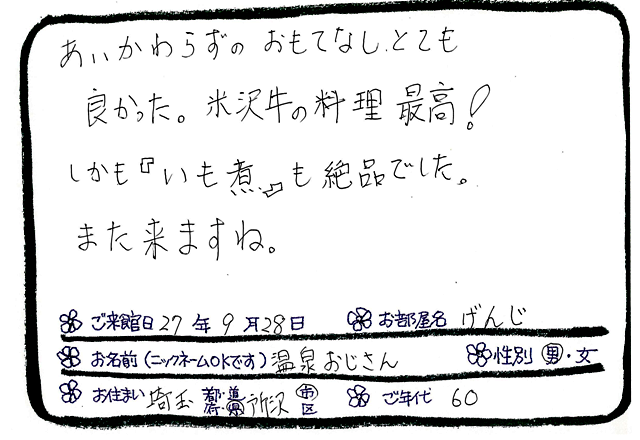 あいかわらずの おもてなし、とても
良かった。米沢牛の料理 最高!
しかも『いも煮』も絶品でした。
また来ますね。
ご来館日 27 年 9 月 28 日 お部屋名 げんじ
お名前(ニックネームOKです) 温泉おじさん 性別 男・女
お住まい 埼玉 都・道・府・県 所沢 市 区 ご年代 60